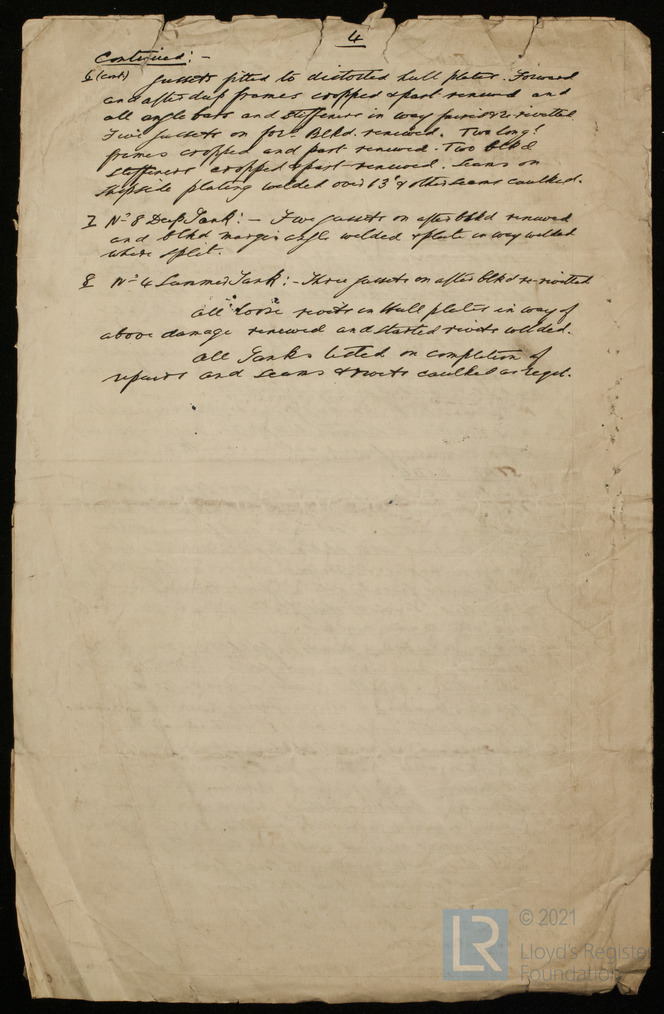 4
Continued: -
6 (cont) Gussets fitted to distorted hull plates. Forward
and after deep frames cropped & part renewed and
all angle bars and stiffeners in way faired & riveted.
Five gussets on for'd Blkd. renewed. Two longl
frames cropped and part renewed. Two blkd
stiffeners cropped & part renewed. Seams on
shipside plating welded over 13' & other seams caulked.
7 No 8 Deep Tank: - Five gussets on after blkd renewed
and blkd margin angle welded & plate in way welded
where split.
8 No 4 Summer Tank: - Three gussets on after blkd re-riveted
All loose rivets in Hull plates in way of
above damage renewed and started rivets welded.
All Tanks tested on completion of
repairs and seams & rivets caulked as reqd.
LR
© 2021
Lloyd's Register
Foundation